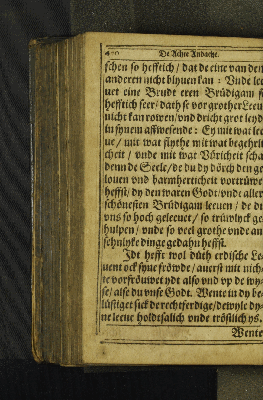 420 De Achte Andacht.
schen so hefftich / dat de eine van dem
anderen nicht blyuen kan : Vnde lee-
uet eine Brudt eren Brüdigam so
hefftich seer / dath se vor grother Leeu
nicht kan rowen / vnd dricht grot leydt
in synem affwesende : Ey mit wat lee-
ue / mit wat flythe mit wat begehrli-
cheit / vnde mit wat Vöricheit schal
denn de Seele / de du dy dörch den ge-
louen vnd barmherticheit vortrüwet
heffst / dy den waren Godt vnde aller
schönesten Brüdigam leeuen / de du
vns so hoch geleeuet / so trüwlyck ge-
hulpen / vnde so veel grothe vnde an-
sehnlyke dinge gedahn heffst.
Jdt hefft wol düth erdische Lee-
uent ock syne fröwde / auerst mit nich-
te vorfröuwet ydt also vnd vp de wy-
se / alse du vnse Godt. Wente in dy be-
lüstiget sick de rechtferdige / dewyle dy-
ne leeue holdtsalich vnde tröstlich ys.
Wente